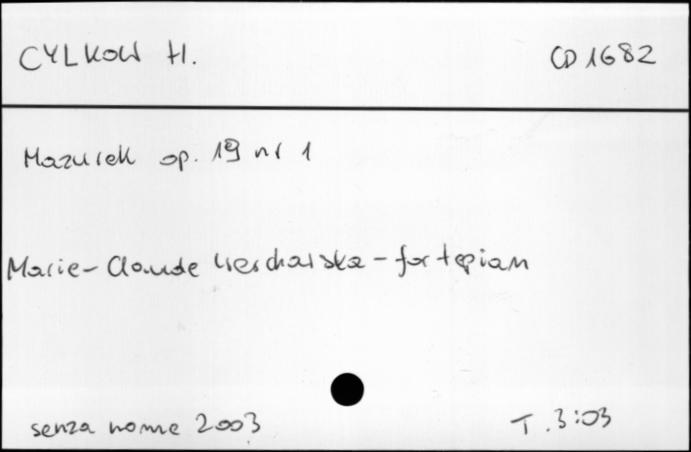 CYLKOW H.
CD 1682
Mazurek op. 19 nr 1
Marie-Claude Werchowska - fortepian
senza nome 2003
T. 3:03